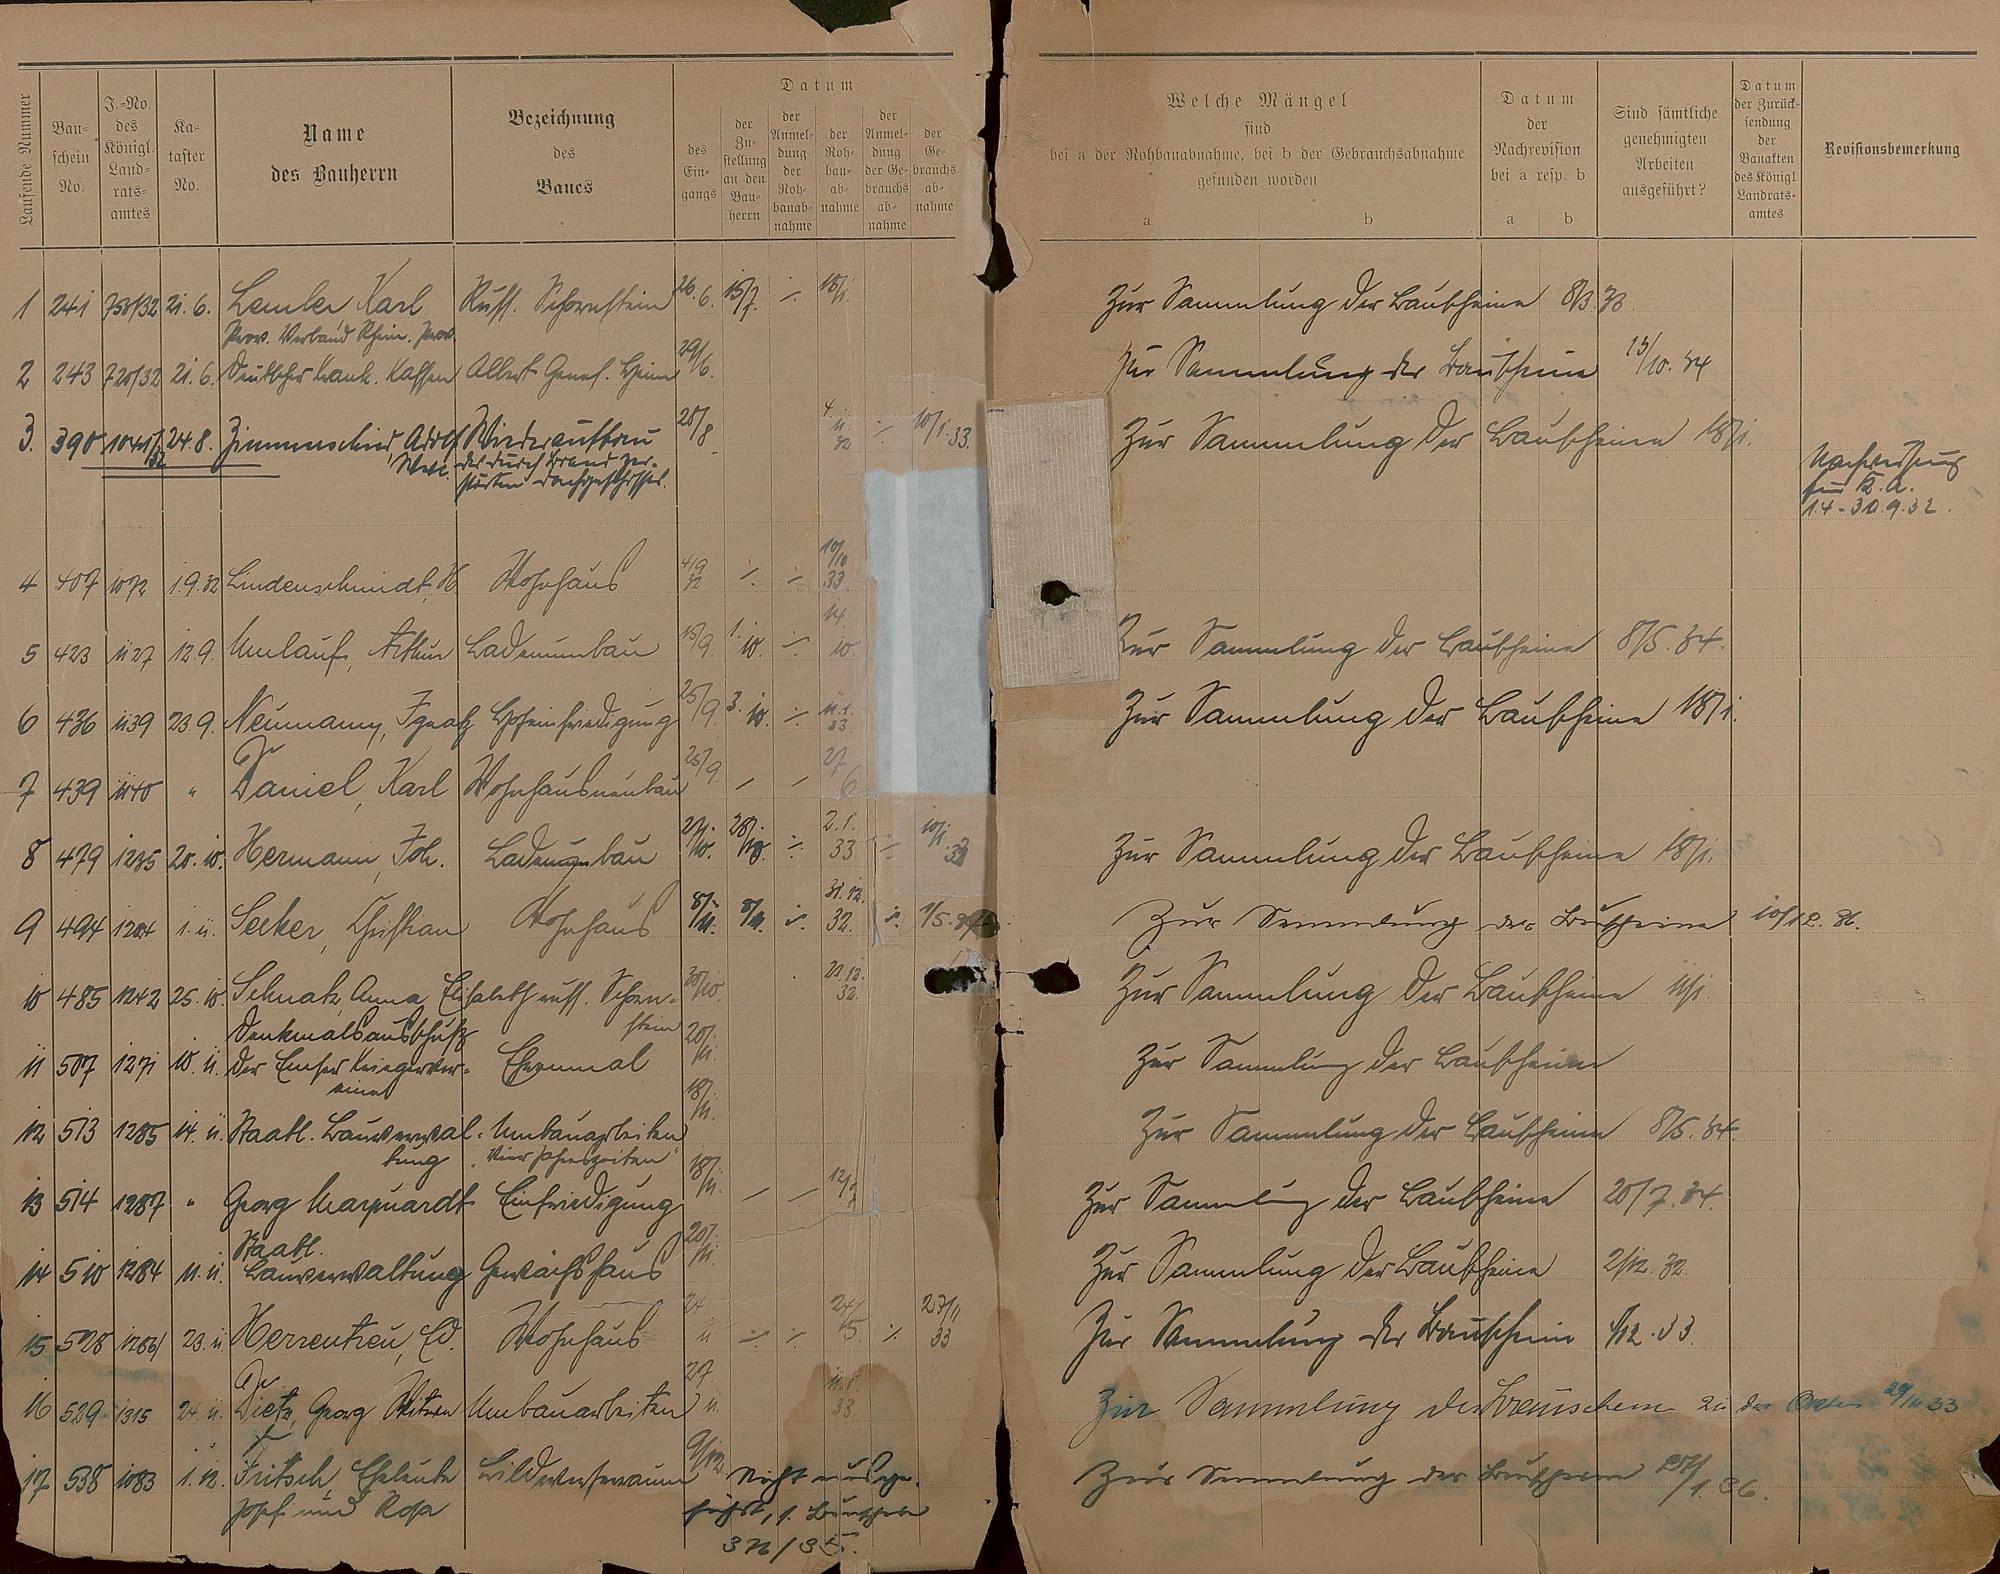 Laufende Nummer
Bau-
schein
No.
J.-No.
des
Königl.
Land-
rats-
amtes
Ka-
taster
No.
Name
des Bauherrn
Bezeichnung
des
Baues
Datum
des
Ein-
gangs
der
Zu-
stellung
an den
Bau-
herrn
der
Anmel-
dung
der
Roh-
bauab-
nahme
der
Roh-
bau-
ab-
nahme
der
Anmel-
dung
der Ge-
brauchs
ab-
nahme
der
Ge-
brauchs
ab-
nahme
Welche Mängel
sind
bei a der Rohbauabnahme, bei b der Gebrauchsabnahme
gefunden worden
a b
Datum
der
Nachrevision
bei a resp. b
a b
Sind sämtliche
genehmigten
Arbeiten
ausgeführt?
Datum
der Zurück-
sendung
der
Bauakten
des Königl.
Landrats-
amtes
Revisionsbemerkung
1 241 758/32 21.6. Lemler Karl Russ. Schornstein 26./6. 15/7. ·/. 18/1. Zur Sammlung der Bauscheine 8/3.33.
Prov. Verband Rhein. Prov.
2 243 720/32 21.6. Deutscher Krank. Kassen Albert Genes. Heim 29/6. Zur Sammlung der Bauscheine 13/10.34
3. 390 1041/32 24.8. Zimmerschied, Adolf Wiederaufbau 25/8. 4. 11. 32 ·/. 10/1.33. Zur Sammlung der Bauscheine 18/1.
Wwe. des durch Brand zer-
störten Dachgeschosses.
Nachweisung
für K.A.
1.4-30.9.32.
4 407 1072 1.9.32 Lindenschmidt, H. Wohnhaus 4/9 32 ·/. ·/. 10/10 33.
5 423 1127 12.9. Umlauf, Arthur Ladenumbau 15/9. 1. 10. ·/. 14. 10 Zur Sammlung der Bauscheine 8/5.34.
6 436 1139 23.9. Neumann, Ignatz Hofeinfriedigung 25/9. 3. 10. ·/. 11.1. 33. Zur Sammlung der Bauscheine 18/1.
7 439 1140 " Daniel, Karl Wohnhausneubau 25/9 / / 27 6 
8 479 1235 20.10. Hermann, Joh. Ladenumbau 27/10. 28/10. ·/. 2.1. 33 ·/. 10/1. 33 Zur Sammlung der Bauscheine 18/1.
9 494 1264 1.11. Seeker, Christian Wohnhaus 8/11. 8/11. ·/. 31.12. 32. ·/. Zur Sammlung der Bauscheine 10/12.36.
10 485 1242 25.10. Schnatz, Anna, Elisabeth russ. Schorn- 30/10. 22.12. 32. Zur Sammlung der Bauscheine 11/1.
stein
Denkmalsausschuß
11 507 1271 10.11. der Emser Kriegerver- Ehrenmal 20/11. Zur Sammlung der Bauscheine
eine
12 513 1285 14.11. Staatl. Bauverwal- Umbauarbeiten 18/11. Zur Sammlung der Bauscheine 8/5.34.
tung „Vier Jahreszeiten"
13 514 1287 " Georg Marquardt Einfriedigung 18/11. / / 12/7 Zur Sammlung der Bauscheine 20/7.34.
Staatl.
14 510 1284 11.11. Bauverwaltung Gewächshaus 20/11. Zur Sammlung der Bauscheine 2/12.32.
15 528 23.11 Herrentreu, Ed. Wohnhaus 24. 11 ·/. ·/. 24/5. ·/. 27/11 33 Zur Sammlung der Bauscheine 4/12.33.
16 529 1315 24.11. Dietz, Georg Witwe Umbauarbeiten 27. 11. 11.1. 33. Zur Sammlung der Bauscheine zu den Akten 29/11 33
17 538 1083 1.12. Fritsch, Eheleute Bildwerferraum 9/12 Nicht ausge- Zur Sammlung der Bauscheine 25/1.36.
Josef und Rosa führt, s. Bauschein
372/35.